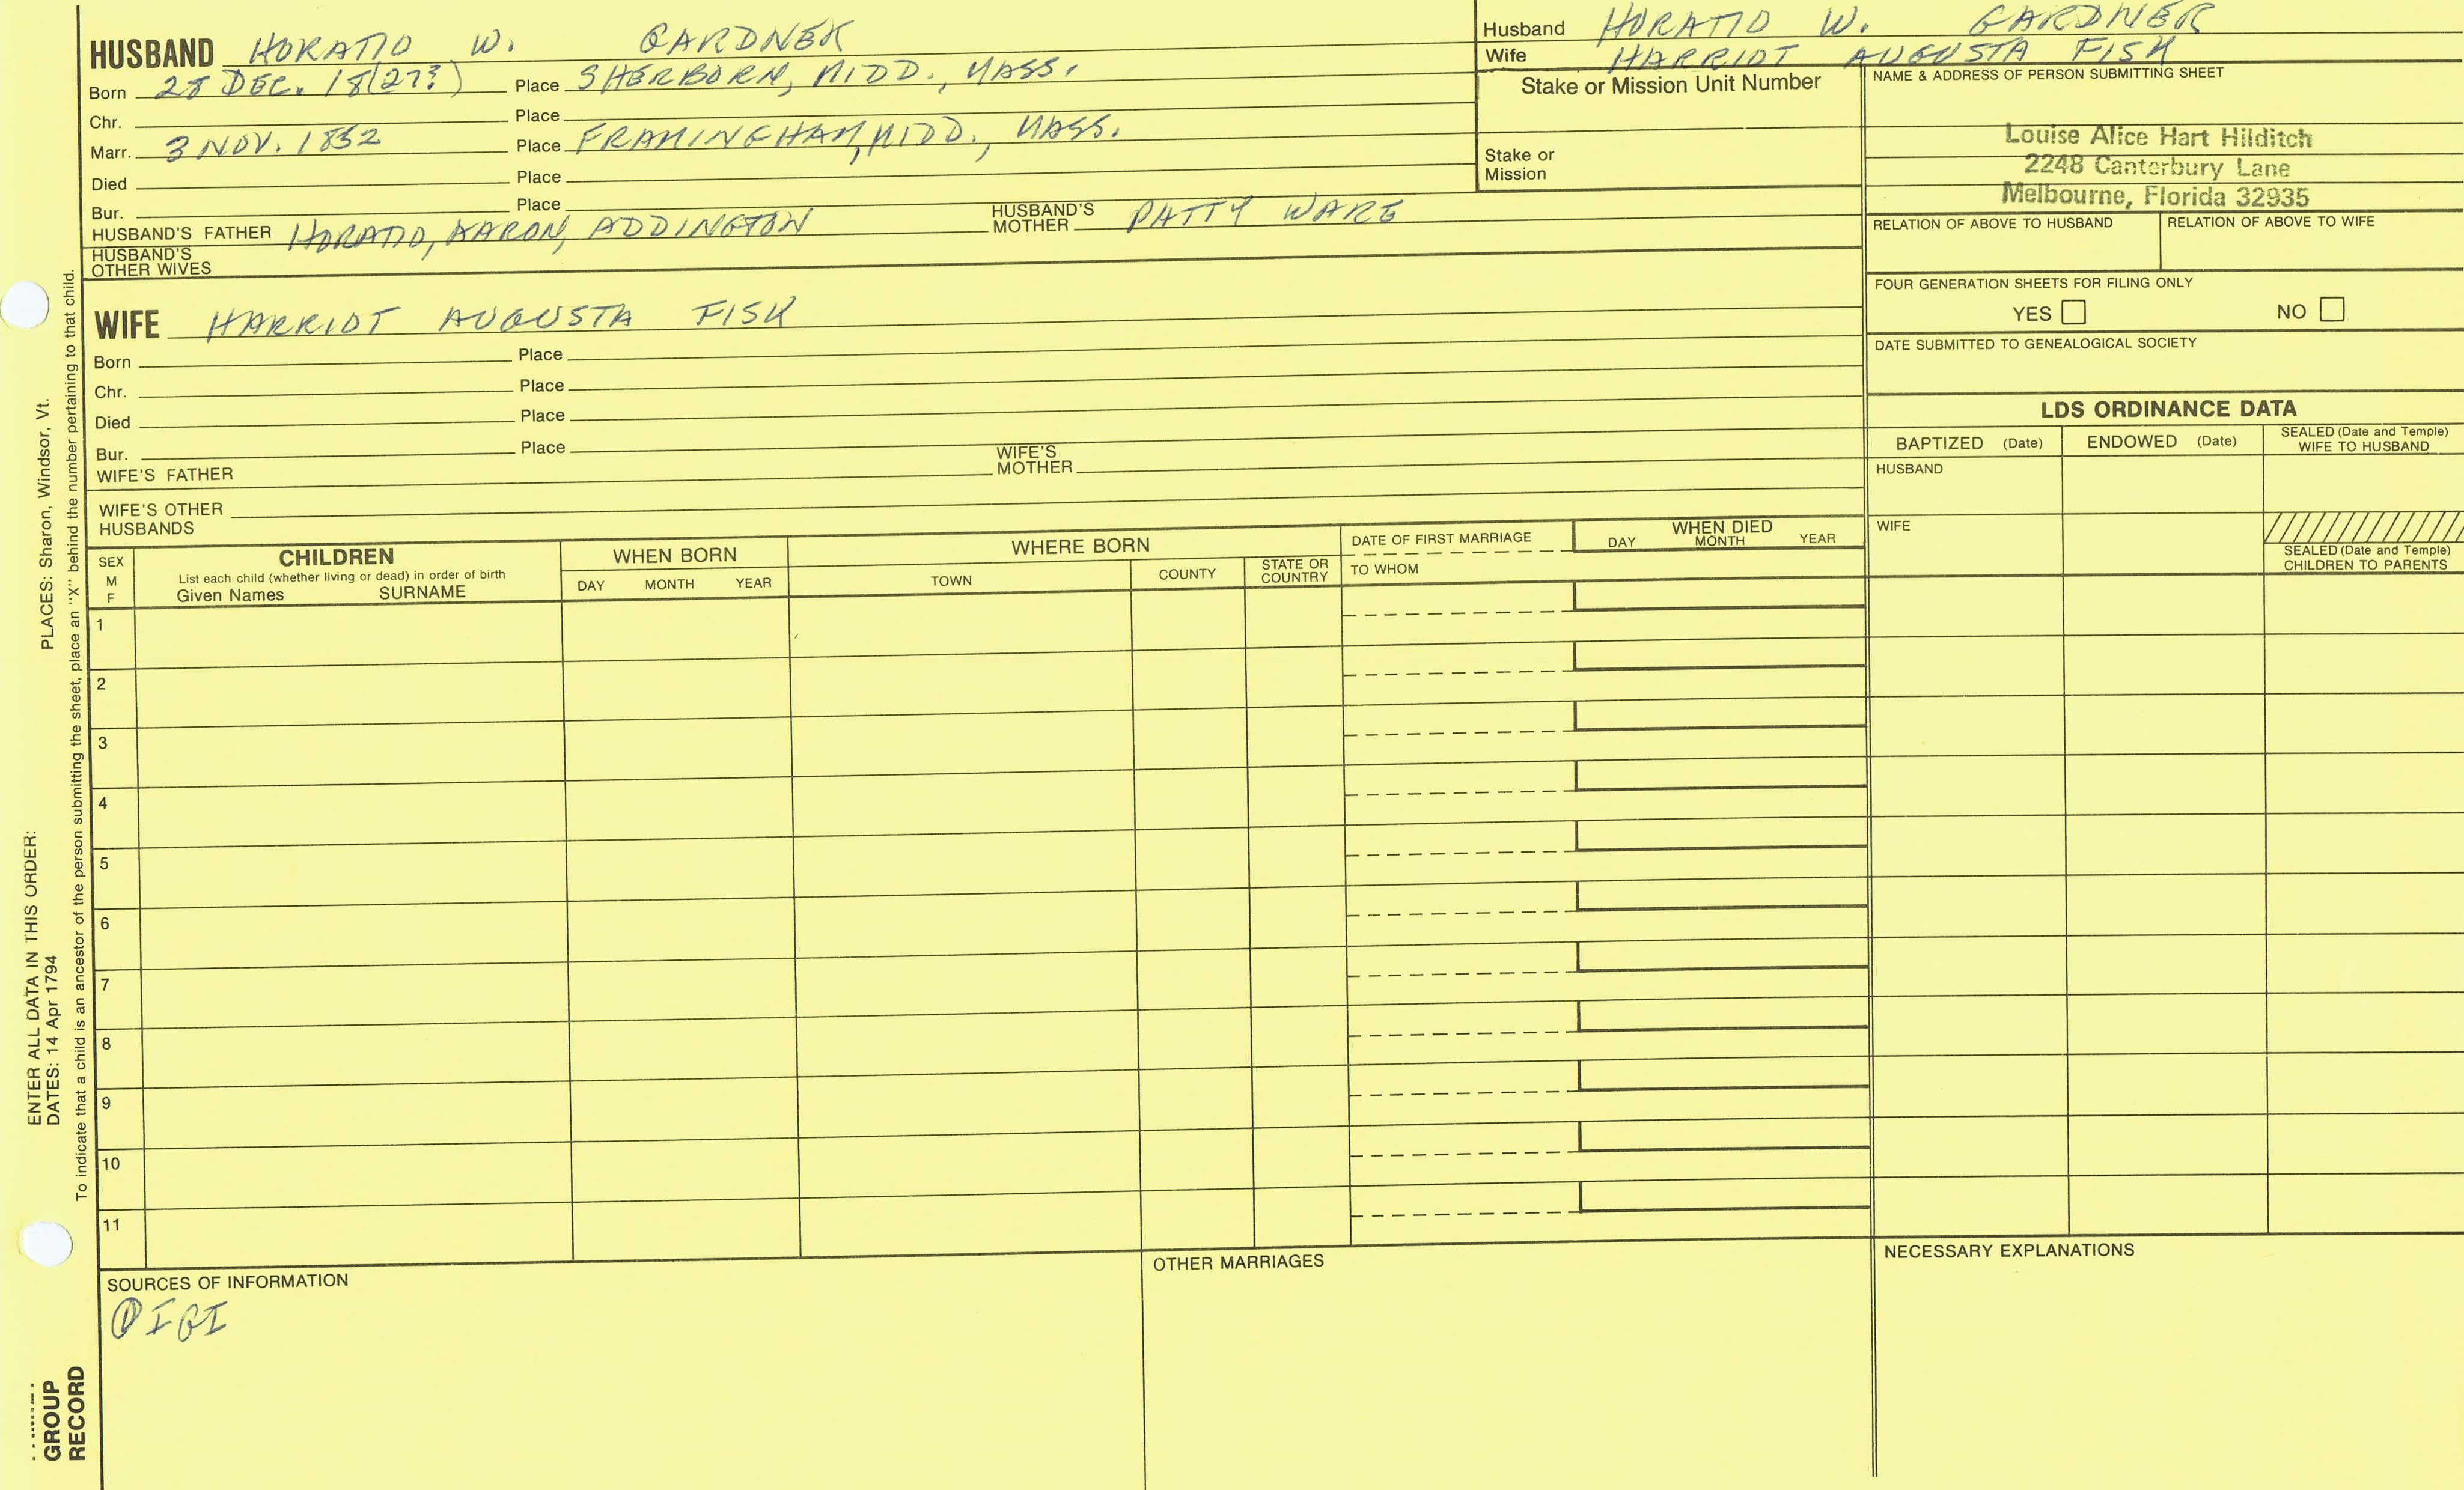 HUSBAND HORATIO W. GARDNER
Born 28 DEC. 18(27?) Place SHERBORN, MIDD., MASS.
Chr. Place
Marr. 3 NOV. 1852 Place FRAMINGHAM, MIDD., MASS.
Died Place
Bur. Place
HUSBAND'S FATHER HORATIO, AARON, ADDINGTON HUSBAND'S MOTHER PATTY WARE
HUSBAND'S OTHER WIVES
WIFE HARRIOT AUGUSTA FISK
Born Place
Chr. Place
Died Place
Bur. Place
WIFE'S FATHER WIFE'S MOTHER
WIFE'S OTHER HUSBANDS
Husband HORATIO W. GARDNER
Wife HARRIOT AUGUSTA FISK
Stake or Mission Unit Number
Stake or
Mission
NAME & ADDRESS OF PERSON SUBMITTING SHEET
Louise Alice Hart Hilditch
2248 Canterbury Lane
Melbourne, Florida 32935
RELATION OF ABOVE TO HUSBAND RELATION OF ABOVE TO WIFE
FOUR GENERATION SHEETS FOR FILING ONLY
YES NO
DATE SUBMITTED TO GENEALOGICAL SOCIETY
LDS ORDINANCE DATA
BAPTIZED (Date) ENDOWED (Date) SEALED (Date and Temple) WIFE TO HUSBAND
HUSBAND
WIFE
SEALED (Date and Temple)
CHILDREN TO PARENTS
SEX
M
F
CHILDREN
List each child (whether living or dead) in order of birth
Given Names SURNAME
WHEN BORN
DAY MONTH YEAR
WHERE BORN
TOWN COUNTY STATE OR COUNTRY
DATE OF FIRST MARRIAGE
TO WHOM
WHEN DIED
DAY MONTH YEAR
1
2
3
4
5
6
7
8
9
10
11
SOURCES OF INFORMATION
① IGI
OTHER MARRIAGES
NECESSARY EXPLANATIONS
ENTER ALL DATA IN THIS ORDER:
DATES: 14 Apr 1794 PLACES: Sharon, Windsor, Vt.
To indicate that a child is an ancestor of the person submitting the sheet, place an "X" behind the number pertaining to that child.
GROUP
RECORD